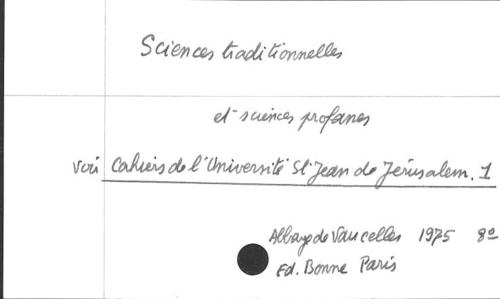 Sciences traditionnelles
et sciences profanes
voir Cahiers de l'Université St Jean de Jérusalem. 1
Abbaye de Vaucelles 1975 8º
Ed. Bonne Paris